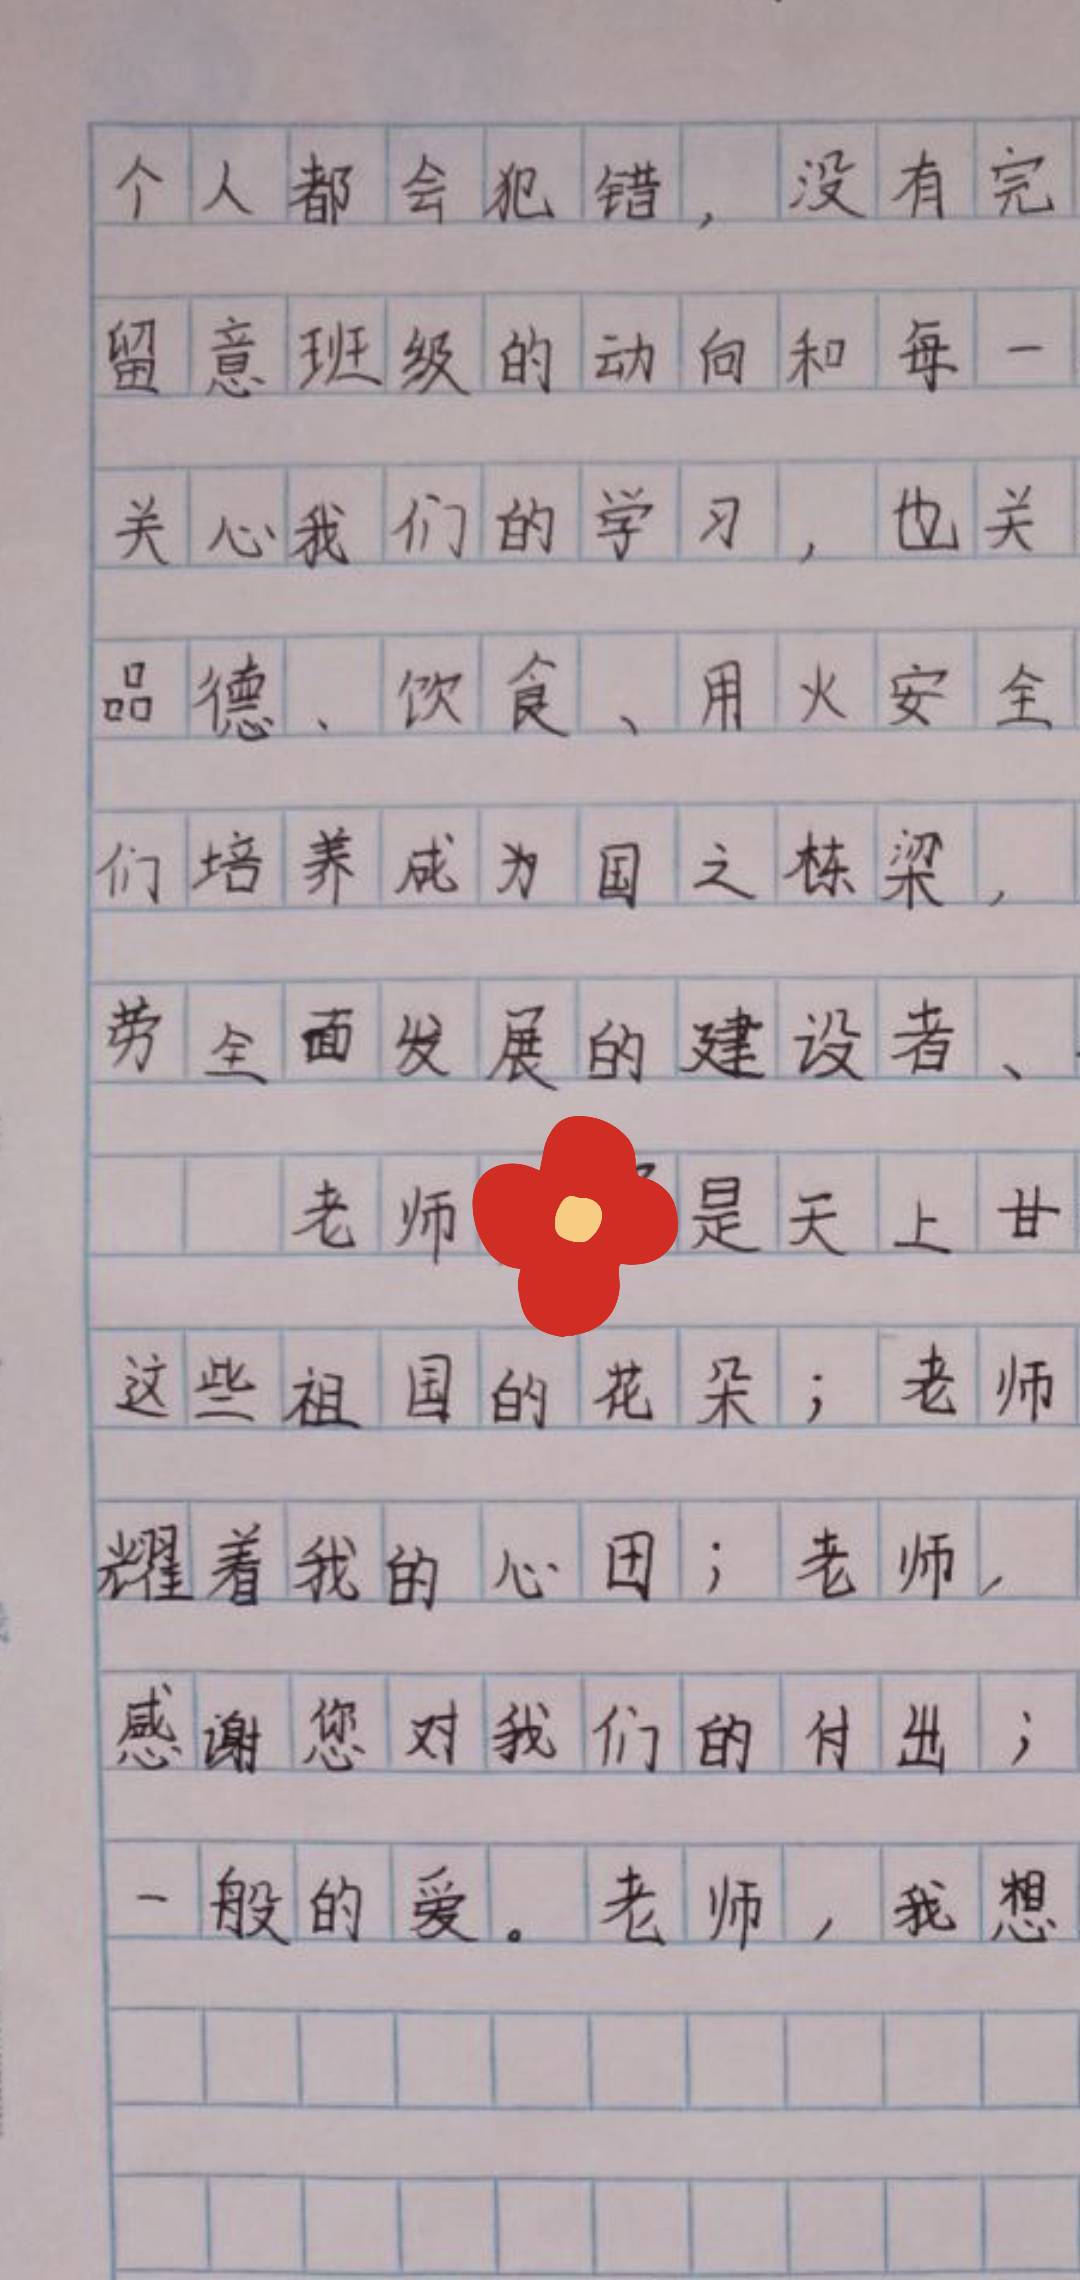 个人都会犯错，没有完
留意班级的动向和每一
关心我们的学习，也关
品德、饮食、用火安全
们培养成为国之栋梁，
劳全面发展的建设者、
老师是天上甘
这些祖国的花朵；老师
耀着我的心田；老师，
感谢您对我们的付出；
一般的爱。老师，我想